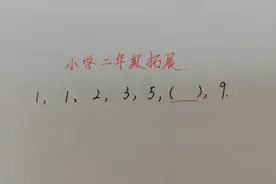 小学二年级拓展.
1, 1, 2, 3, 5, ( ), 9.